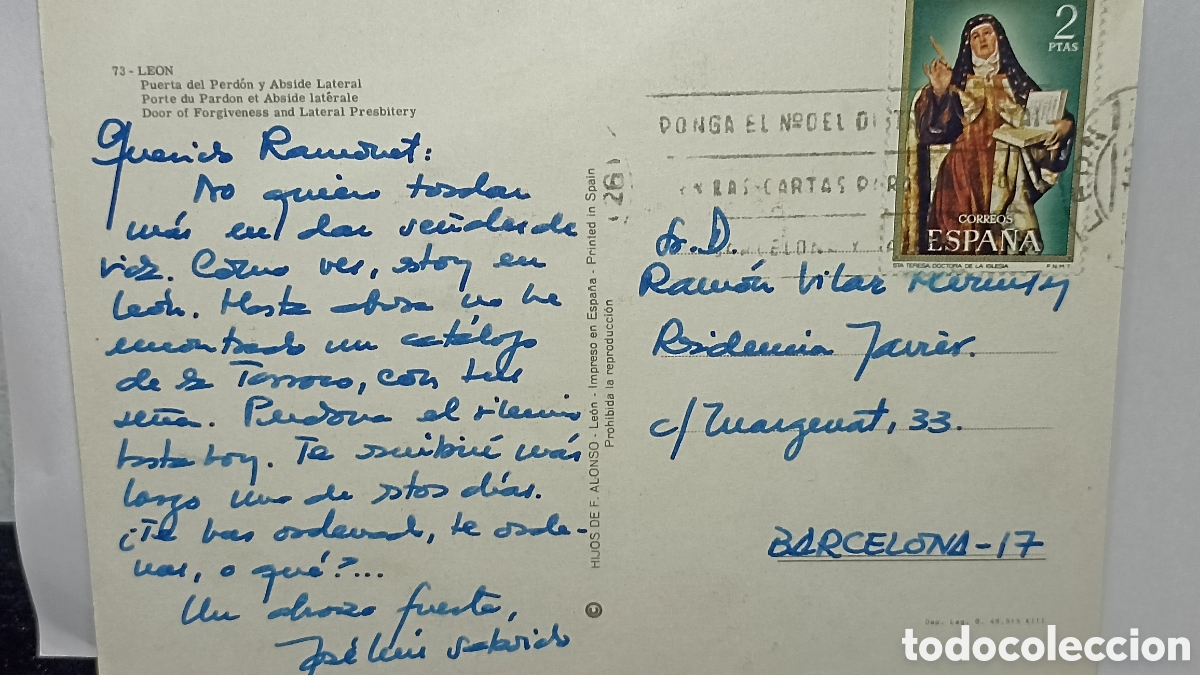 73 - LEON
Puerta del Perdón y Abside Lateral
Porte du Pardon et Abside latérale
Door of Forgiveness and Lateral Presbitery
Querido Ramonet:
No quiero tardar
más en dar señales de
vida. Como ves, estoy en
León. Hasta ahora no he
encontrado un catálogo
de la Tarraco, con tus
seña. Perdona el silencio
hasta hoy. Te escribiré más
largo uno de estos días.
¿Te has ordenado, te orde-
nas, o qué?...
Un abrazo fuerte,
José Luis
HIJOS DE F. ALONSO - León - Impreso en España - Printed in Spain
Prohibida la reproducción
©
PONGA EL Nº DEL DIST
EN LAS CARTAS PARA
BARCELONA Y
2
PTAS
CORREOS
ESPAÑA
STA TERESA DOCTORA DE LA IGLESIA
F.N.M.T.
Sr. D.
Ramón Vilar
Residencia Javier.
c/ Margenat, 33.
BARCELONA-17
Dep. Leg. B.
todocoleccion